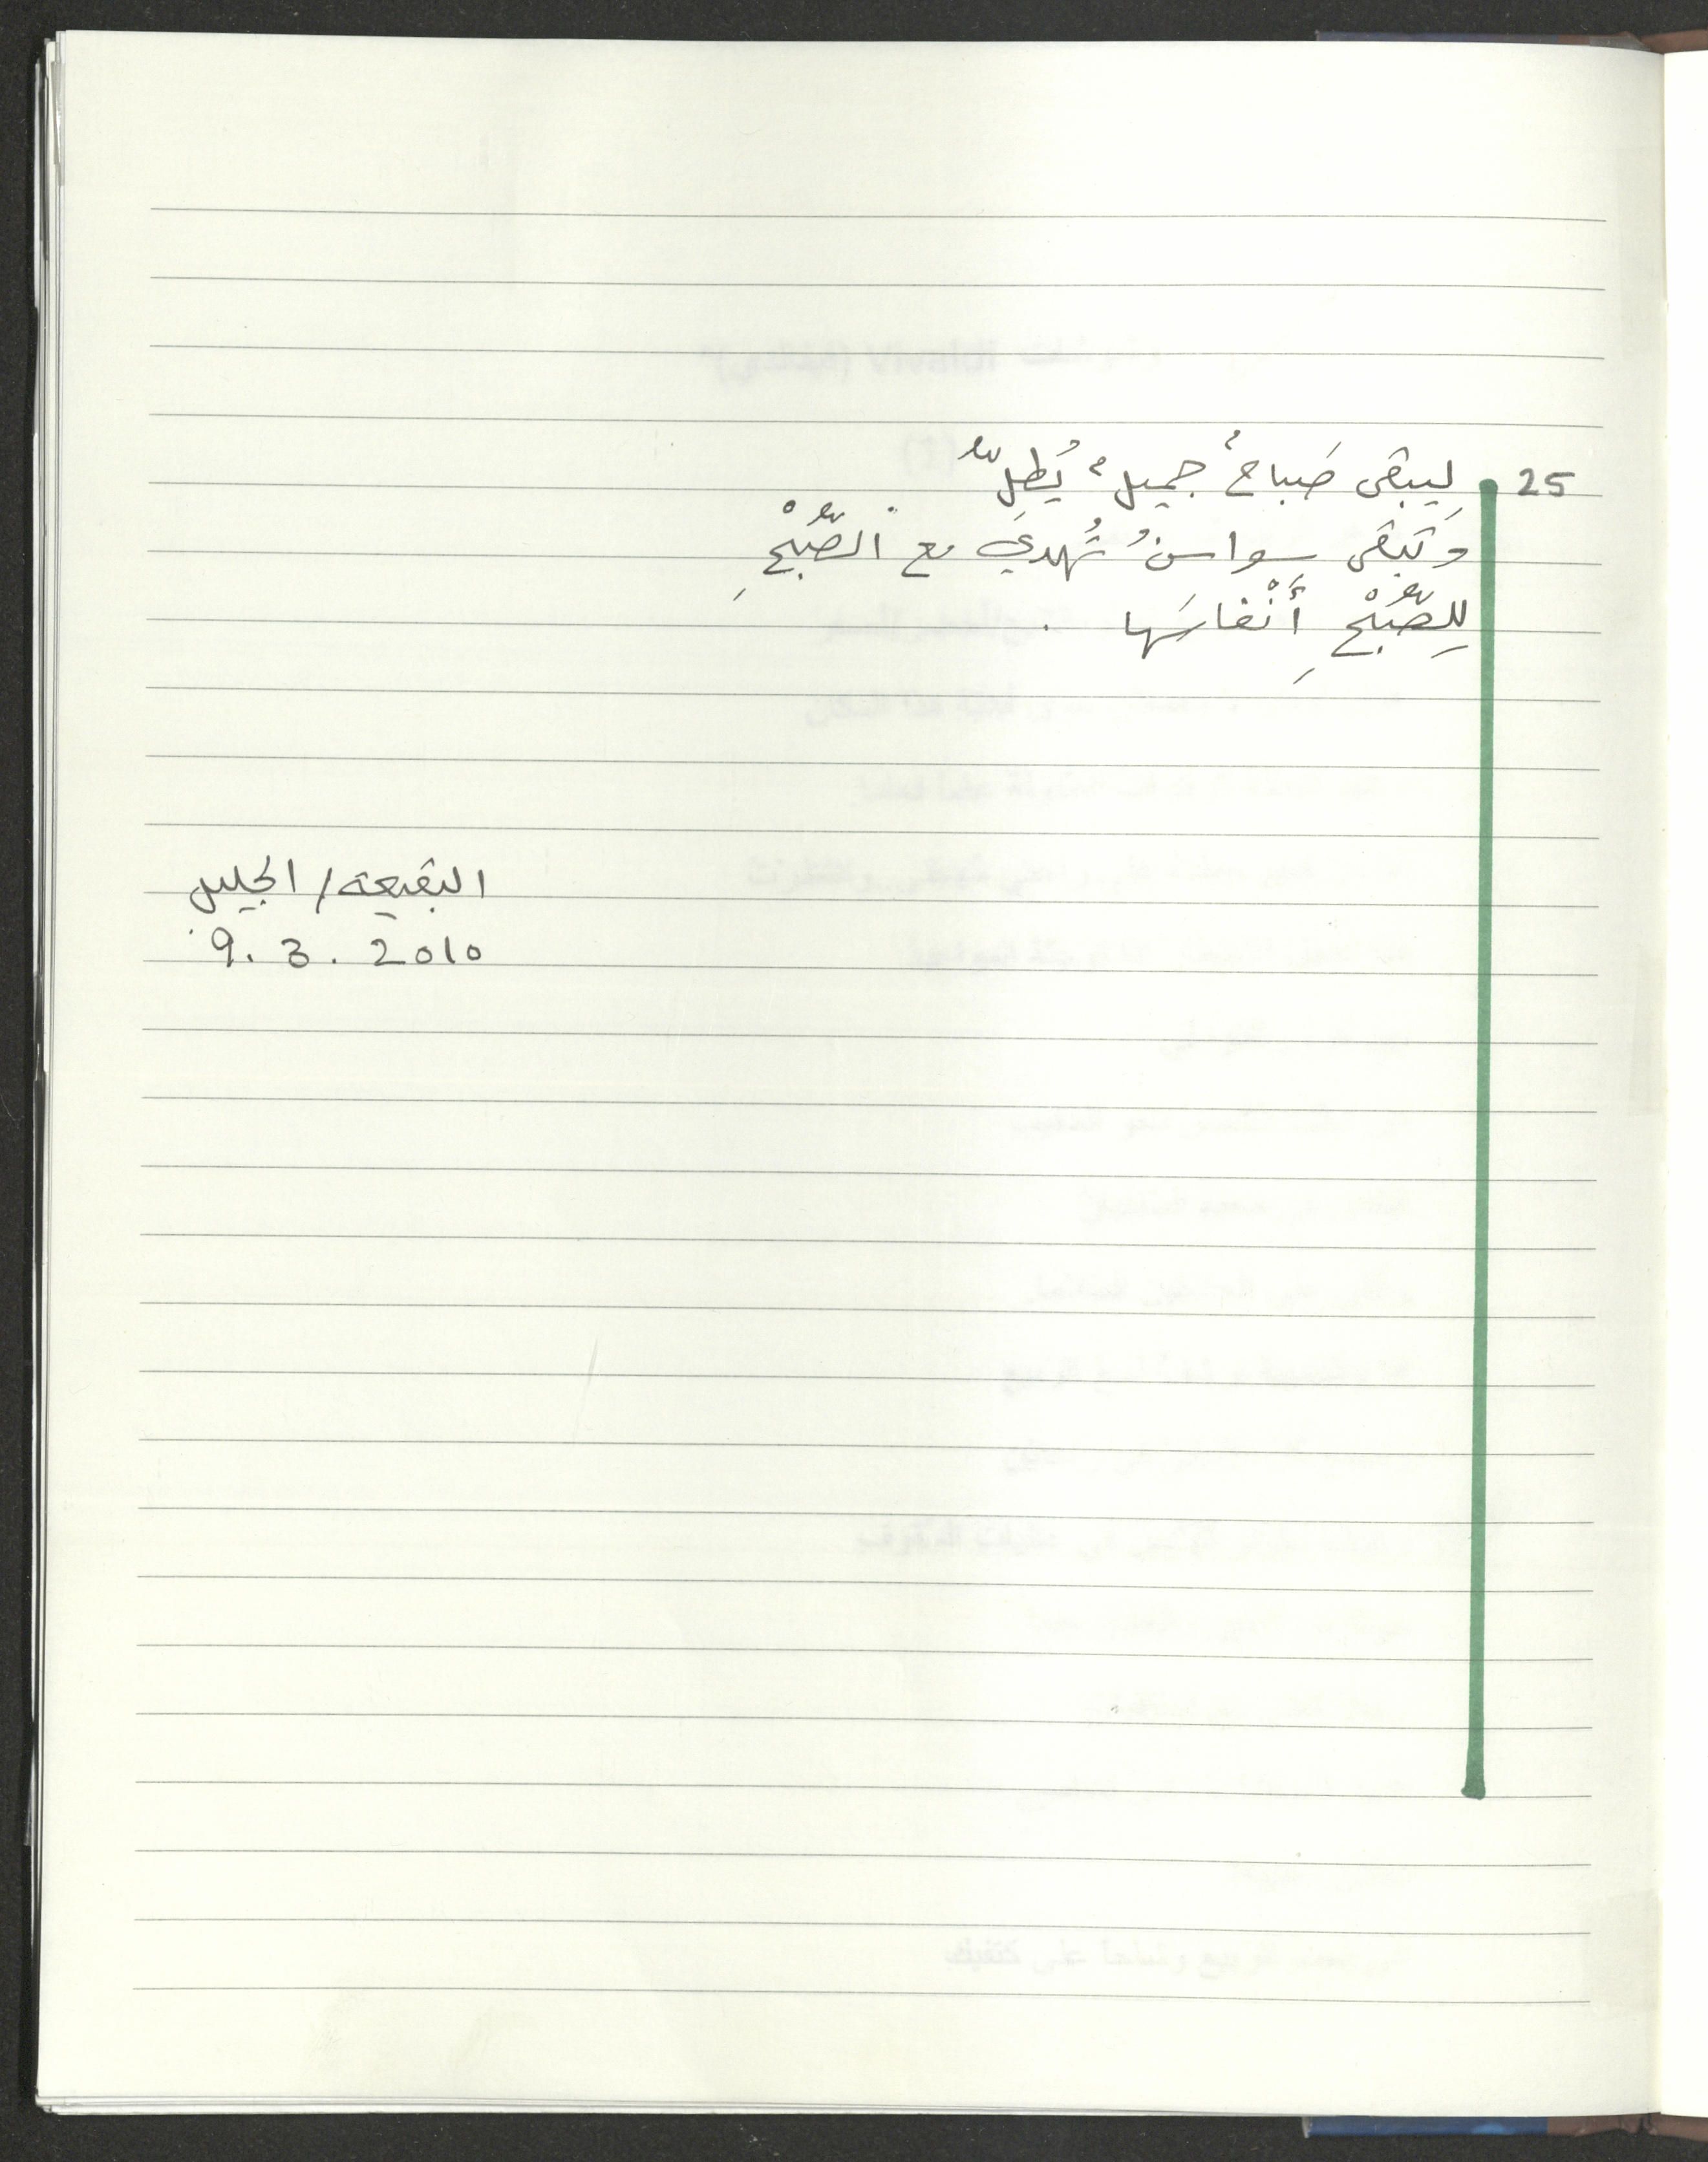 25 لِيَبقى صَباحٌ جميلٌ يُطِلُّ
وَتَبقى سواسنُ تُهدي مع الصُّبْحِ
لِلصُّبْحِ أَنْفاسَها .
البقيعة / الجليل
9. 3. 2010